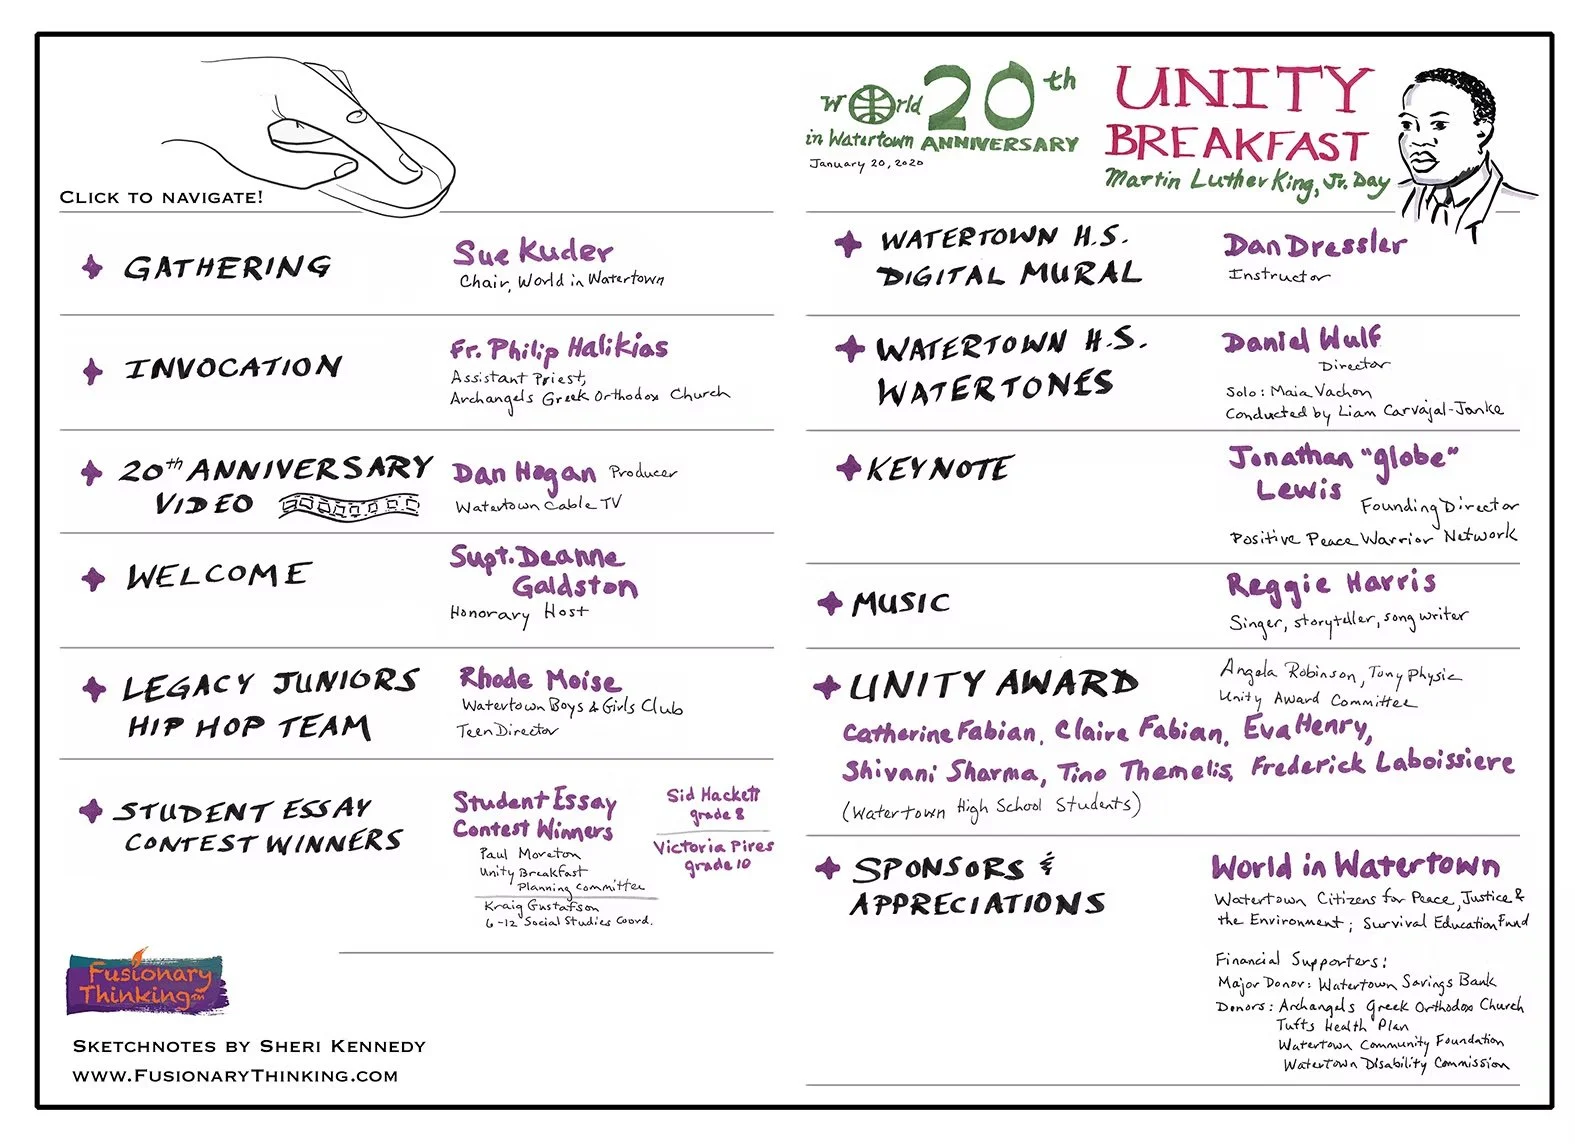 CLICK TO NAVIGATE!
GATHERING
Sue Kuder
Chair, World in Watertown
INVOCATION
Fr. Philip Halikias
Assistant Priest,
Archangels Greek Orthodox Church
20th ANNIVERSARY
VIDEO
Dan Hogan Producer
Watertown Cable TV
WELCOME
Supt. Deanne
Galdston
Honorary Host
LEGACY JUNIORS
HIP HOP TEAM
Rhode Moise
Watertown Boys & Girls Club
Teen Director
STUDENT ESSAY
CONTEST WINNERS
Student Essay
Contest Winners
Paul Moreton
Unity Breakfast
Planning Committee
Kraig Gustafson
6-12 Social Studies Coord.
Sid Hackett
grade 8
Victoria Pires
grade 10
Fusionary
Thinking™
SKETCHNOTES BY SHERI KENNEDY
WWW.FUSIONARYTHINKING.COM
World 20th
in Watertown ANNIVERSARY
January 20, 2020
UNITY
BREAKFAST
Martin Luther King, Jr. Day
WATERTOWN H.S.
DIGITAL MURAL
Dan Dressler
Instructor
WATERTOWN H.S.
WATERTONES
Daniel Wulf
Director
Solo: Maia Vachon
Conducted by Liam Carvajal-Janke
KEYNOTE
Jonathan "globe"
Lewis
Founding Director
Positive Peace Warrior Network
MUSIC
Reggie Harris
Singer, storyteller, song writer
UNITY AWARD
Angela Robinson, Tony Physic
Unity Award Committee
Catherine Fabian, Claire Fabian, Eva Henry,
Shivani Sharma, Tino Themelis, Frederick Laboissiere
(Watertown High School Students)
SPONSORS &
APPRECIATIONS
World in Watertown
Watertown Citizens for Peace, Justice &
the Environment; Survival Education Fund
Financial Supporters:
Major Donor: Watertown Savings Bank
Donors: Archangels Greek Orthodox Church
Tufts Health Plan
Watertown Community Foundation
Watertown Disability Commission